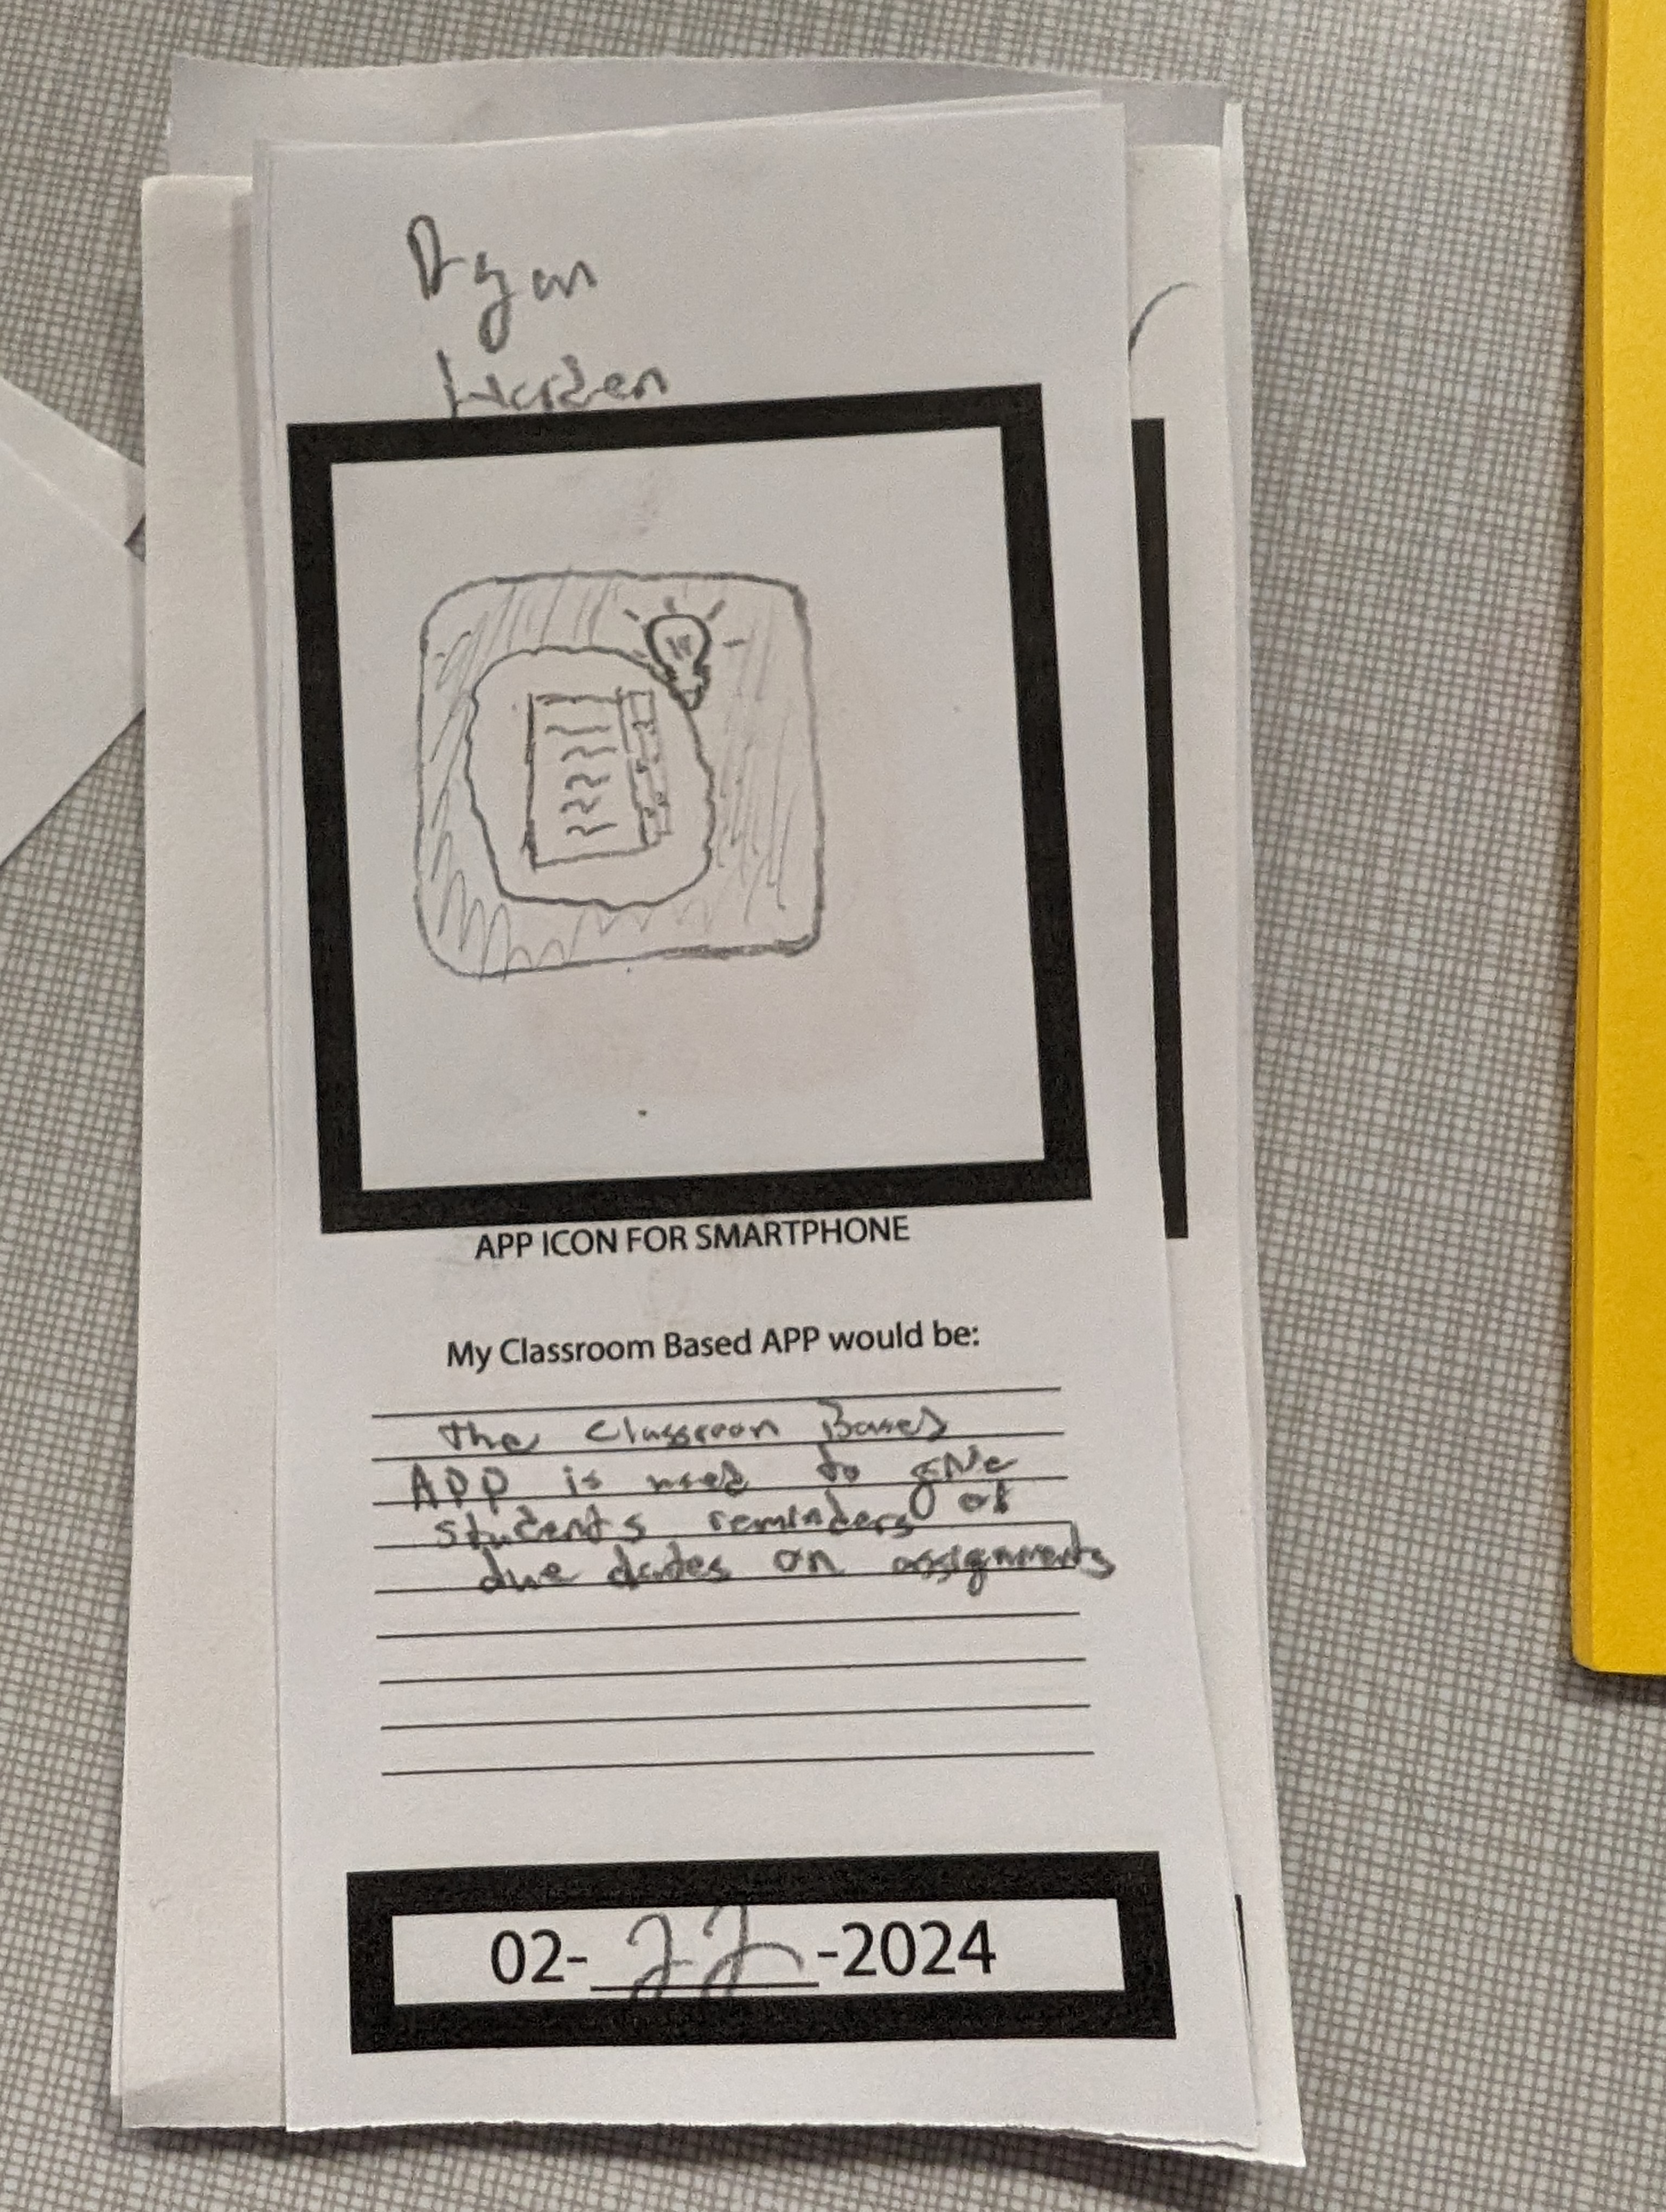 Ryan
Hazen
APP ICON FOR SMARTPHONE
My Classroom Based APP would be:
The Classroom Based
APP is used to give
students reminders of
due dates on assignments
02-22-2024